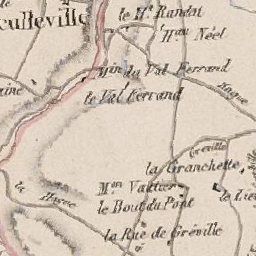 culleville
le Ht. Randal
Hau Néel
Min du Val Ferrand
le Val Ferrand
Hague
Gréville
la Granchette
la Haye
Mon Vautier
le Bout du Pont
la Rue de Gréville